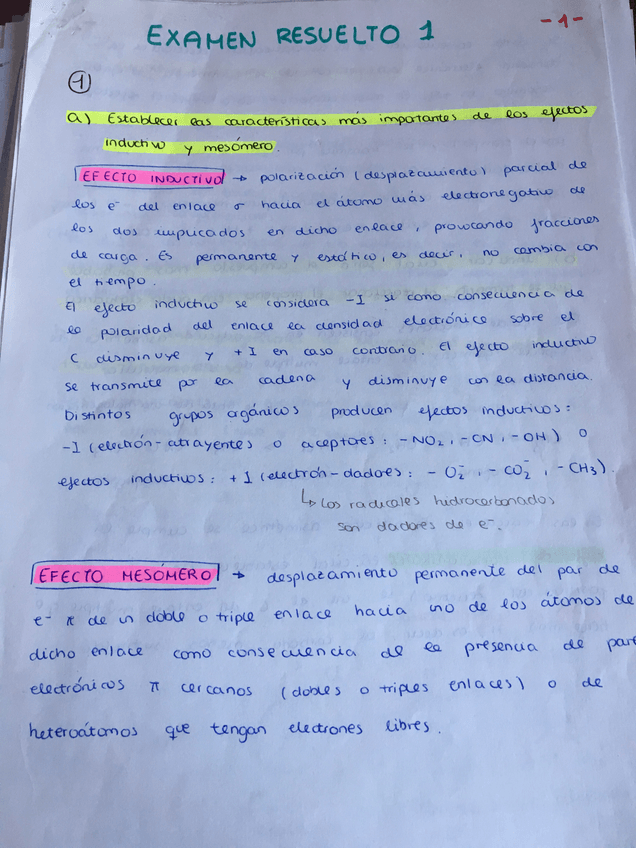 - 1 -
EXAMEN RESUELTO 1
1
a) Establecer las características más importantes de los efectos
inductivo y mesómero.
EFECTO INDUCTIVO → polarización (desplazamiento) parcial de
los e⁻ del enlace σ hacia el átomo más electronegativo de
los dos implicados en dicho enlace, provocando fracciones
de carga. Es permanente y estático, es decir, no cambia con
el tiempo.
El efecto inductivo se considera -I si como consecuencia de
la polaridad del enlace la densidad electrónica sobre el
C disminuye y +I en caso contrario. El efecto inductivo
se transmite por la cadena y disminuye con la distancia.
Distintos grupos orgánicos producen efectos inductivos:
-I (electrón-atrayentes o aceptores: -NO₂, -CN, -OH) o
efectos inductivos: +I (electrón-dadores: -O₂⁻, -CO₂⁻, -CH₃).
↳ Los radicales hidrocarbonados
son dadores de e⁻.
EFECTO MESÓMERO → desplazamiento permanente del par de
e⁻ π de un doble o triple enlace hacia uno de los átomos de
dicho enlace como consecuencia de la presencia de pare
electrónicos π cercanos (dobles o triples enlaces) o de
heteroátomos que tengan electrones libres.